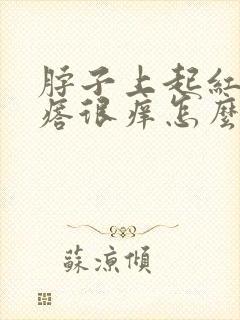 脖子上起紅
痞很痒怎麼
蘇涼傾